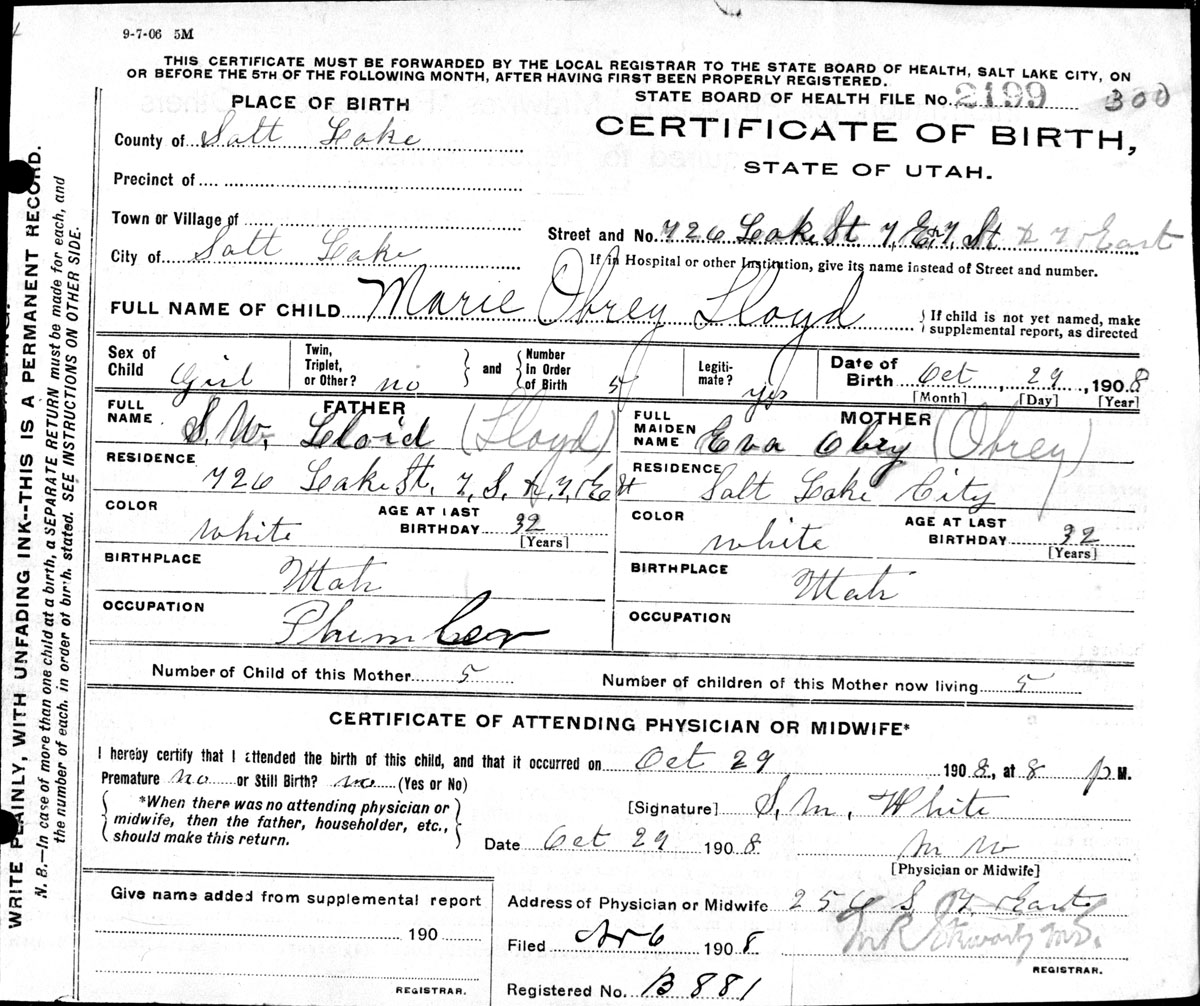 9-7-06 5M
THIS CERTIFICATE MUST BE FORWARDED BY THE LOCAL REGISTRAR TO THE STATE BOARD OF HEALTH, SALT LAKE CITY, ON
OR BEFORE THE 5TH OF THE FOLLOWING MONTH, AFTER HAVING FIRST BEEN PROPERLY REGISTERED.
STATE BOARD OF HEALTH FILE No. 2199 300
PLACE OF BIRTH
CERTIFICATE OF BIRTH,
STATE OF UTAH.
County of Salt Lake
Precinct of
Town or Village of
Street and No. 726 Lake St
City of Salt Lake
If in Hospital or other Institution, give its name instead of Street and number.
FULL NAME OF CHILD Marie Obrey Lloyd
If child is not yet named, make
supplemental report, as directed
Sex of Child Girl
Twin, Triplet, or Other? no
and
Number in Order of Birth 5
Legiti-mate? yes
Date of Birth Oct, 29, 1908
[Month] [Day] [Year]
FULL NAME FATHER
S. W. Lloid (Lloyd)
FULL MAIDEN NAME MOTHER
Eva Obry (Obrey)
RESIDENCE 726 Lake St.
RESIDENCE Salt Lake City
COLOR white
AGE AT LAST BIRTHDAY 32
[Years]
COLOR white
AGE AT LAST BIRTHDAY 32
[Years]
BIRTHPLACE Utah
BIRTHPLACE Utah
OCCUPATION Plumber
OCCUPATION
Number of Child of this Mother 5
Number of children of this Mother now living 5
CERTIFICATE OF ATTENDING PHYSICIAN OR MIDWIFE*
I hereby certify that I attended the birth of this child, and that it occurred on Oct 29 1908, at 8 p M.
Premature no or Still Birth? no (Yes or No)
*When there was no attending physician or
midwife, then the father, householder, etc.,
should make this return.
[Signature] S. M. White
Date Oct 29 1908
M W
[Physician or Midwife]
Give name added from supplemental report
190
REGISTRAR.
Address of Physician or Midwife 256 S 7 East
Filed 1908
REGISTRAR.
Registered No. B 881
WRITE PLAINLY, WITH UNFADING INK--THIS IS A PERMANENT RECORD.
N. B.—In case of more than one child at a birth, a SEPARATE RETURN must be made for each, and
the number of each, in order of birth, stated. SEE INSTRUCTIONS ON OTHER SIDE.